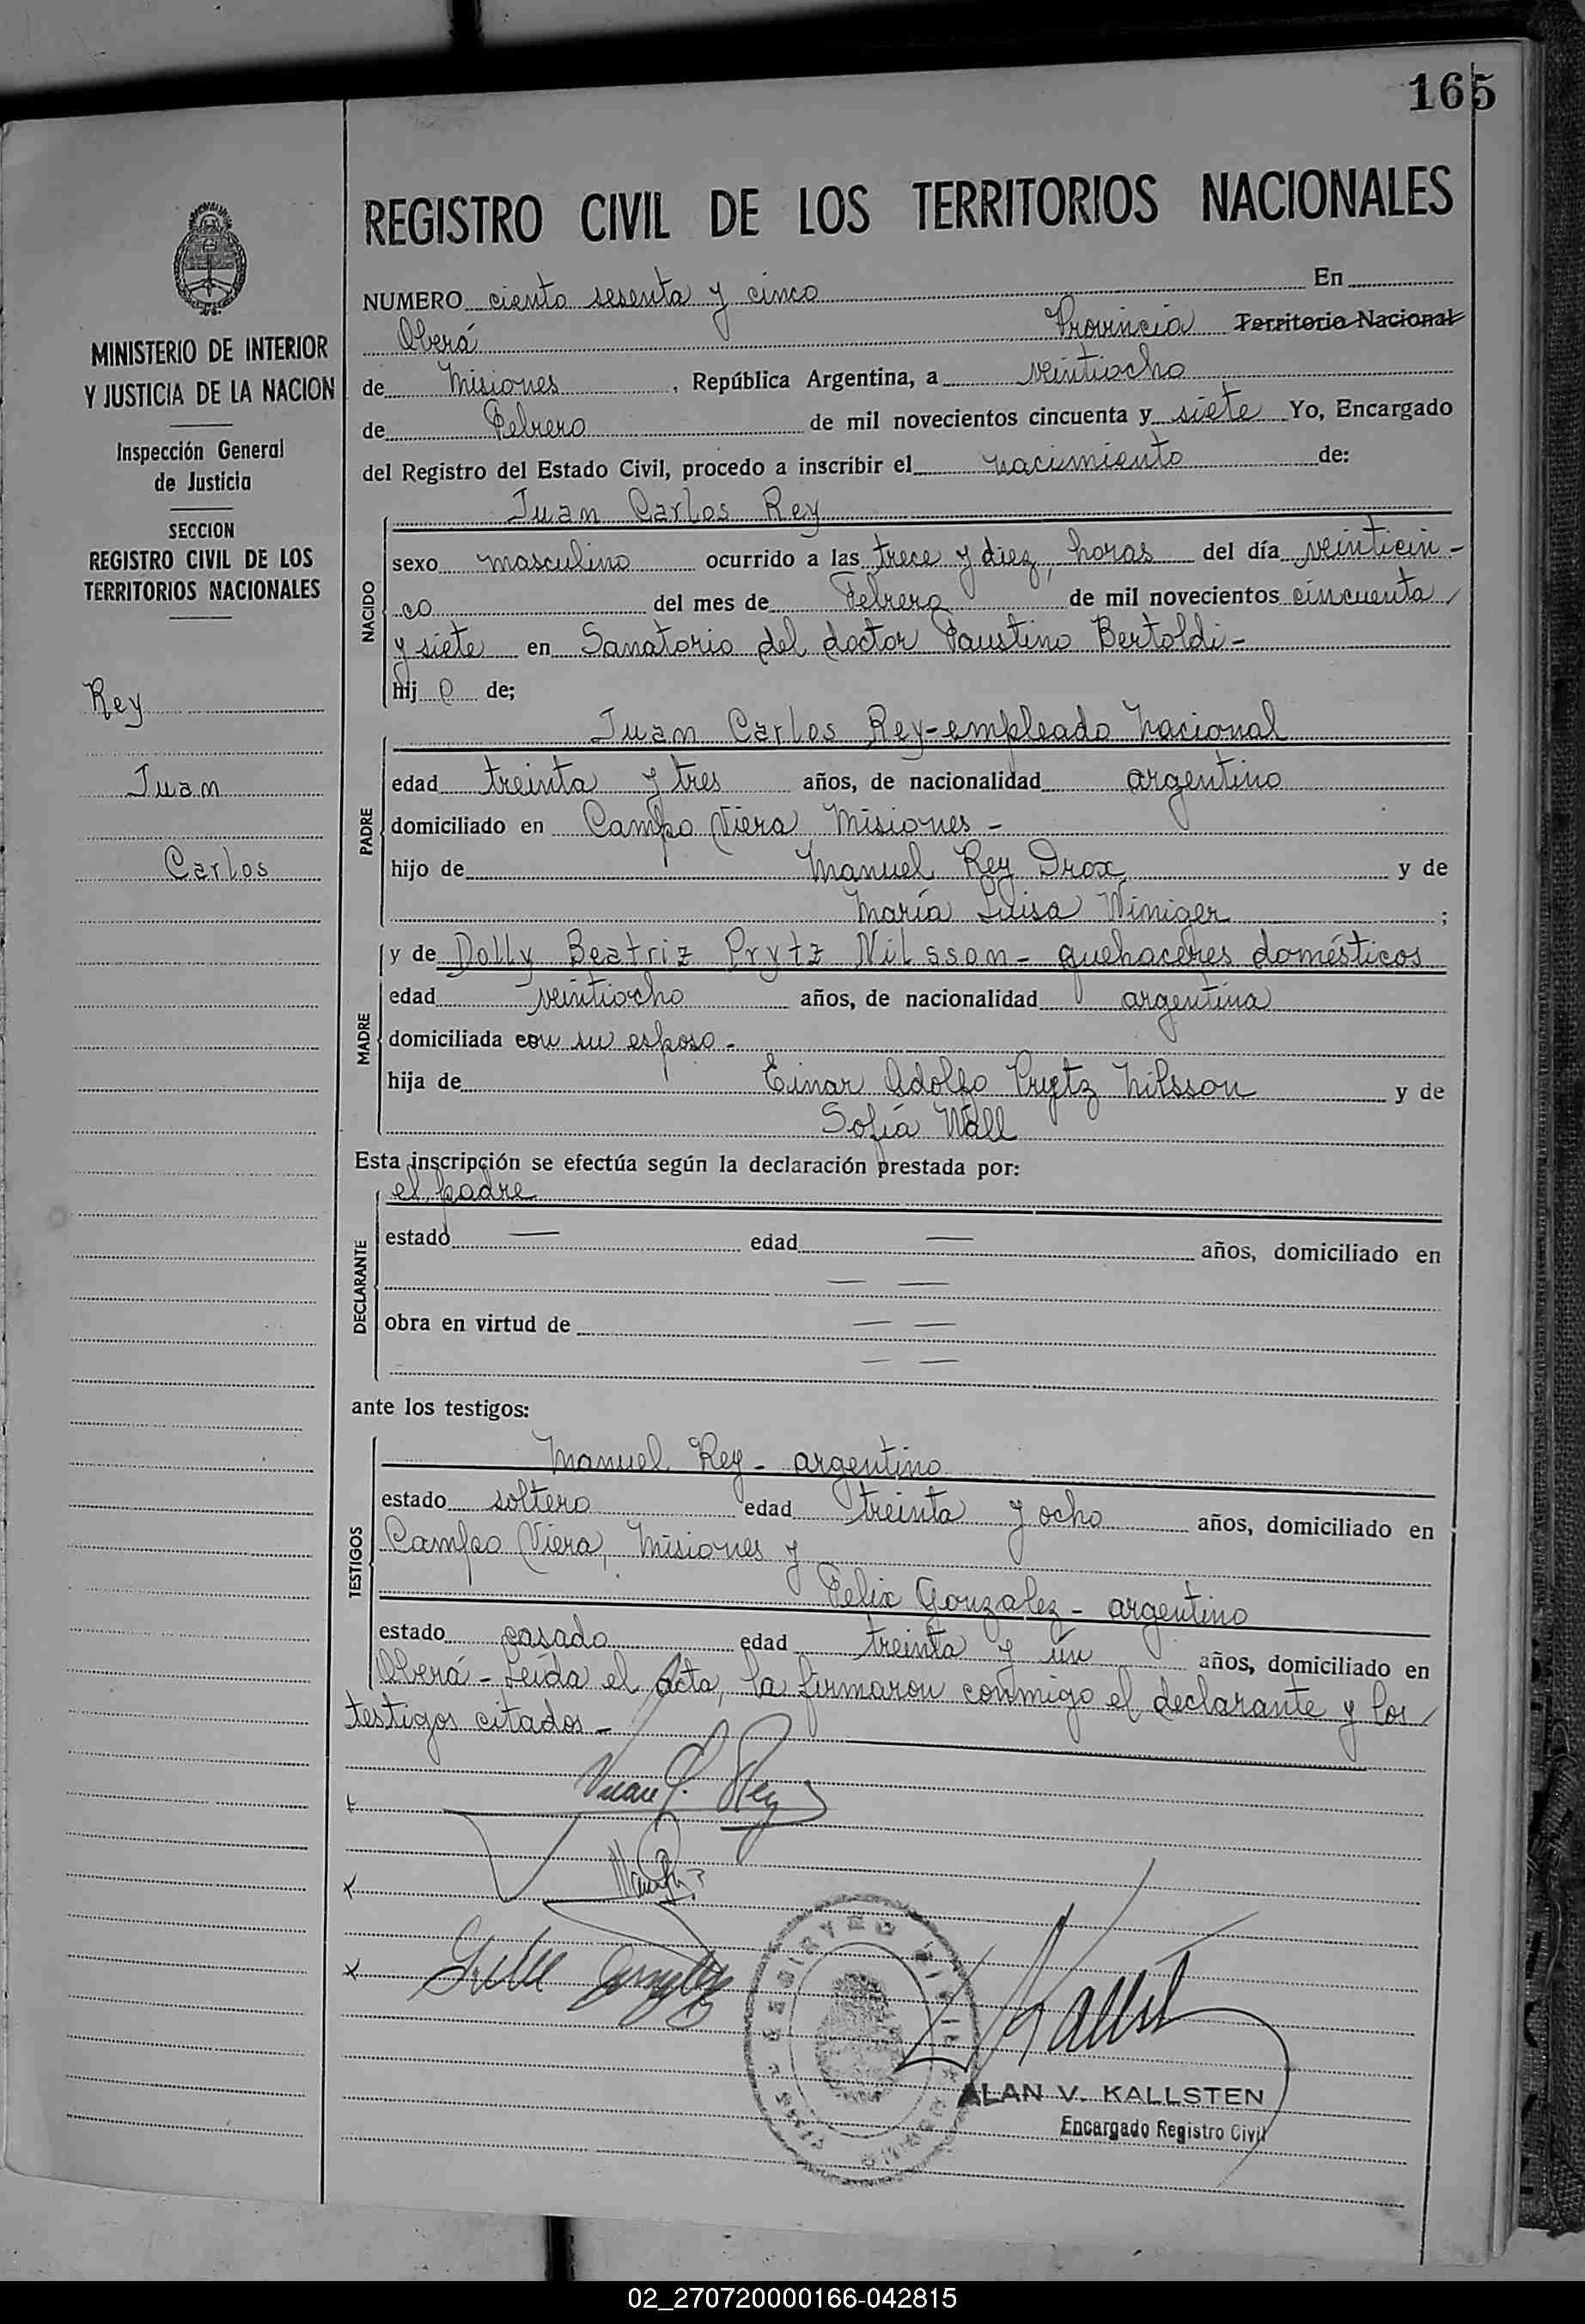 165
REGISTRO CIVIL DE LOS TERRITORIOS NACIONALES
MINISTERIO DE INTERIOR
Y JUSTICIA DE LA NACION
Inspección General
de Justicia
SECCION
REGISTRO CIVIL DE LOS
TERRITORIOS NACIONALES
Rey
Juan
Carlos
NUMERO ciento sesenta y cinco En
Oberá Provincia Territorio Nacional
de Misiones, República Argentina, a veintiocho
de Febrero de mil novecientos cincuenta y siete Yo, Encargado
del Registro del Estado Civil, procedo a inscribir el nacimiento de:
NACIDO
Juan Carlos Rey
sexo masculino ocurrido a las trece y diez, horas del día veinticin-
co del mes de Febrero de mil novecientos cincuenta
y siete en Sanatorio del doctor Faustino Bertoldi-
hij o de;
PADRE
Juan Carlos Rey-empleado Nacional
edad treinta y tres años, de nacionalidad argentino
domiciliado en Campo Viera Misiones -
hijo de Manuel Rey Drox y de
María Luisa Winiger ;
MADRE
y de Dolly Beatriz Prytz Nilsson - quehaceres domésticos
edad veintiocho años, de nacionalidad argentina
domiciliada con su esposo -
hija de Einar Adolfo Prytz Nilsson y de
Sofía Wall
Esta inscripción se efectúa según la declaración prestada por:
DECLARANTE
el padre
estado — edad — años, domiciliado en
— —
obra en virtud de — —
— —
ante los testigos:
TESTIGOS
Manuel Rey - argentino
estado soltero edad treinta y ocho años, domiciliado en
Campo Viera, Misiones y
Felix Gonzalez - argentino
estado casado edad treinta y un años, domiciliado en
Oberá - Leída el Acta, la firmaron conmigo el declarante y los
testigos citados -
Juan C. Rey
ALAN V. KALLSTEN
Encargado Registro Civil
02_270720000166-042815